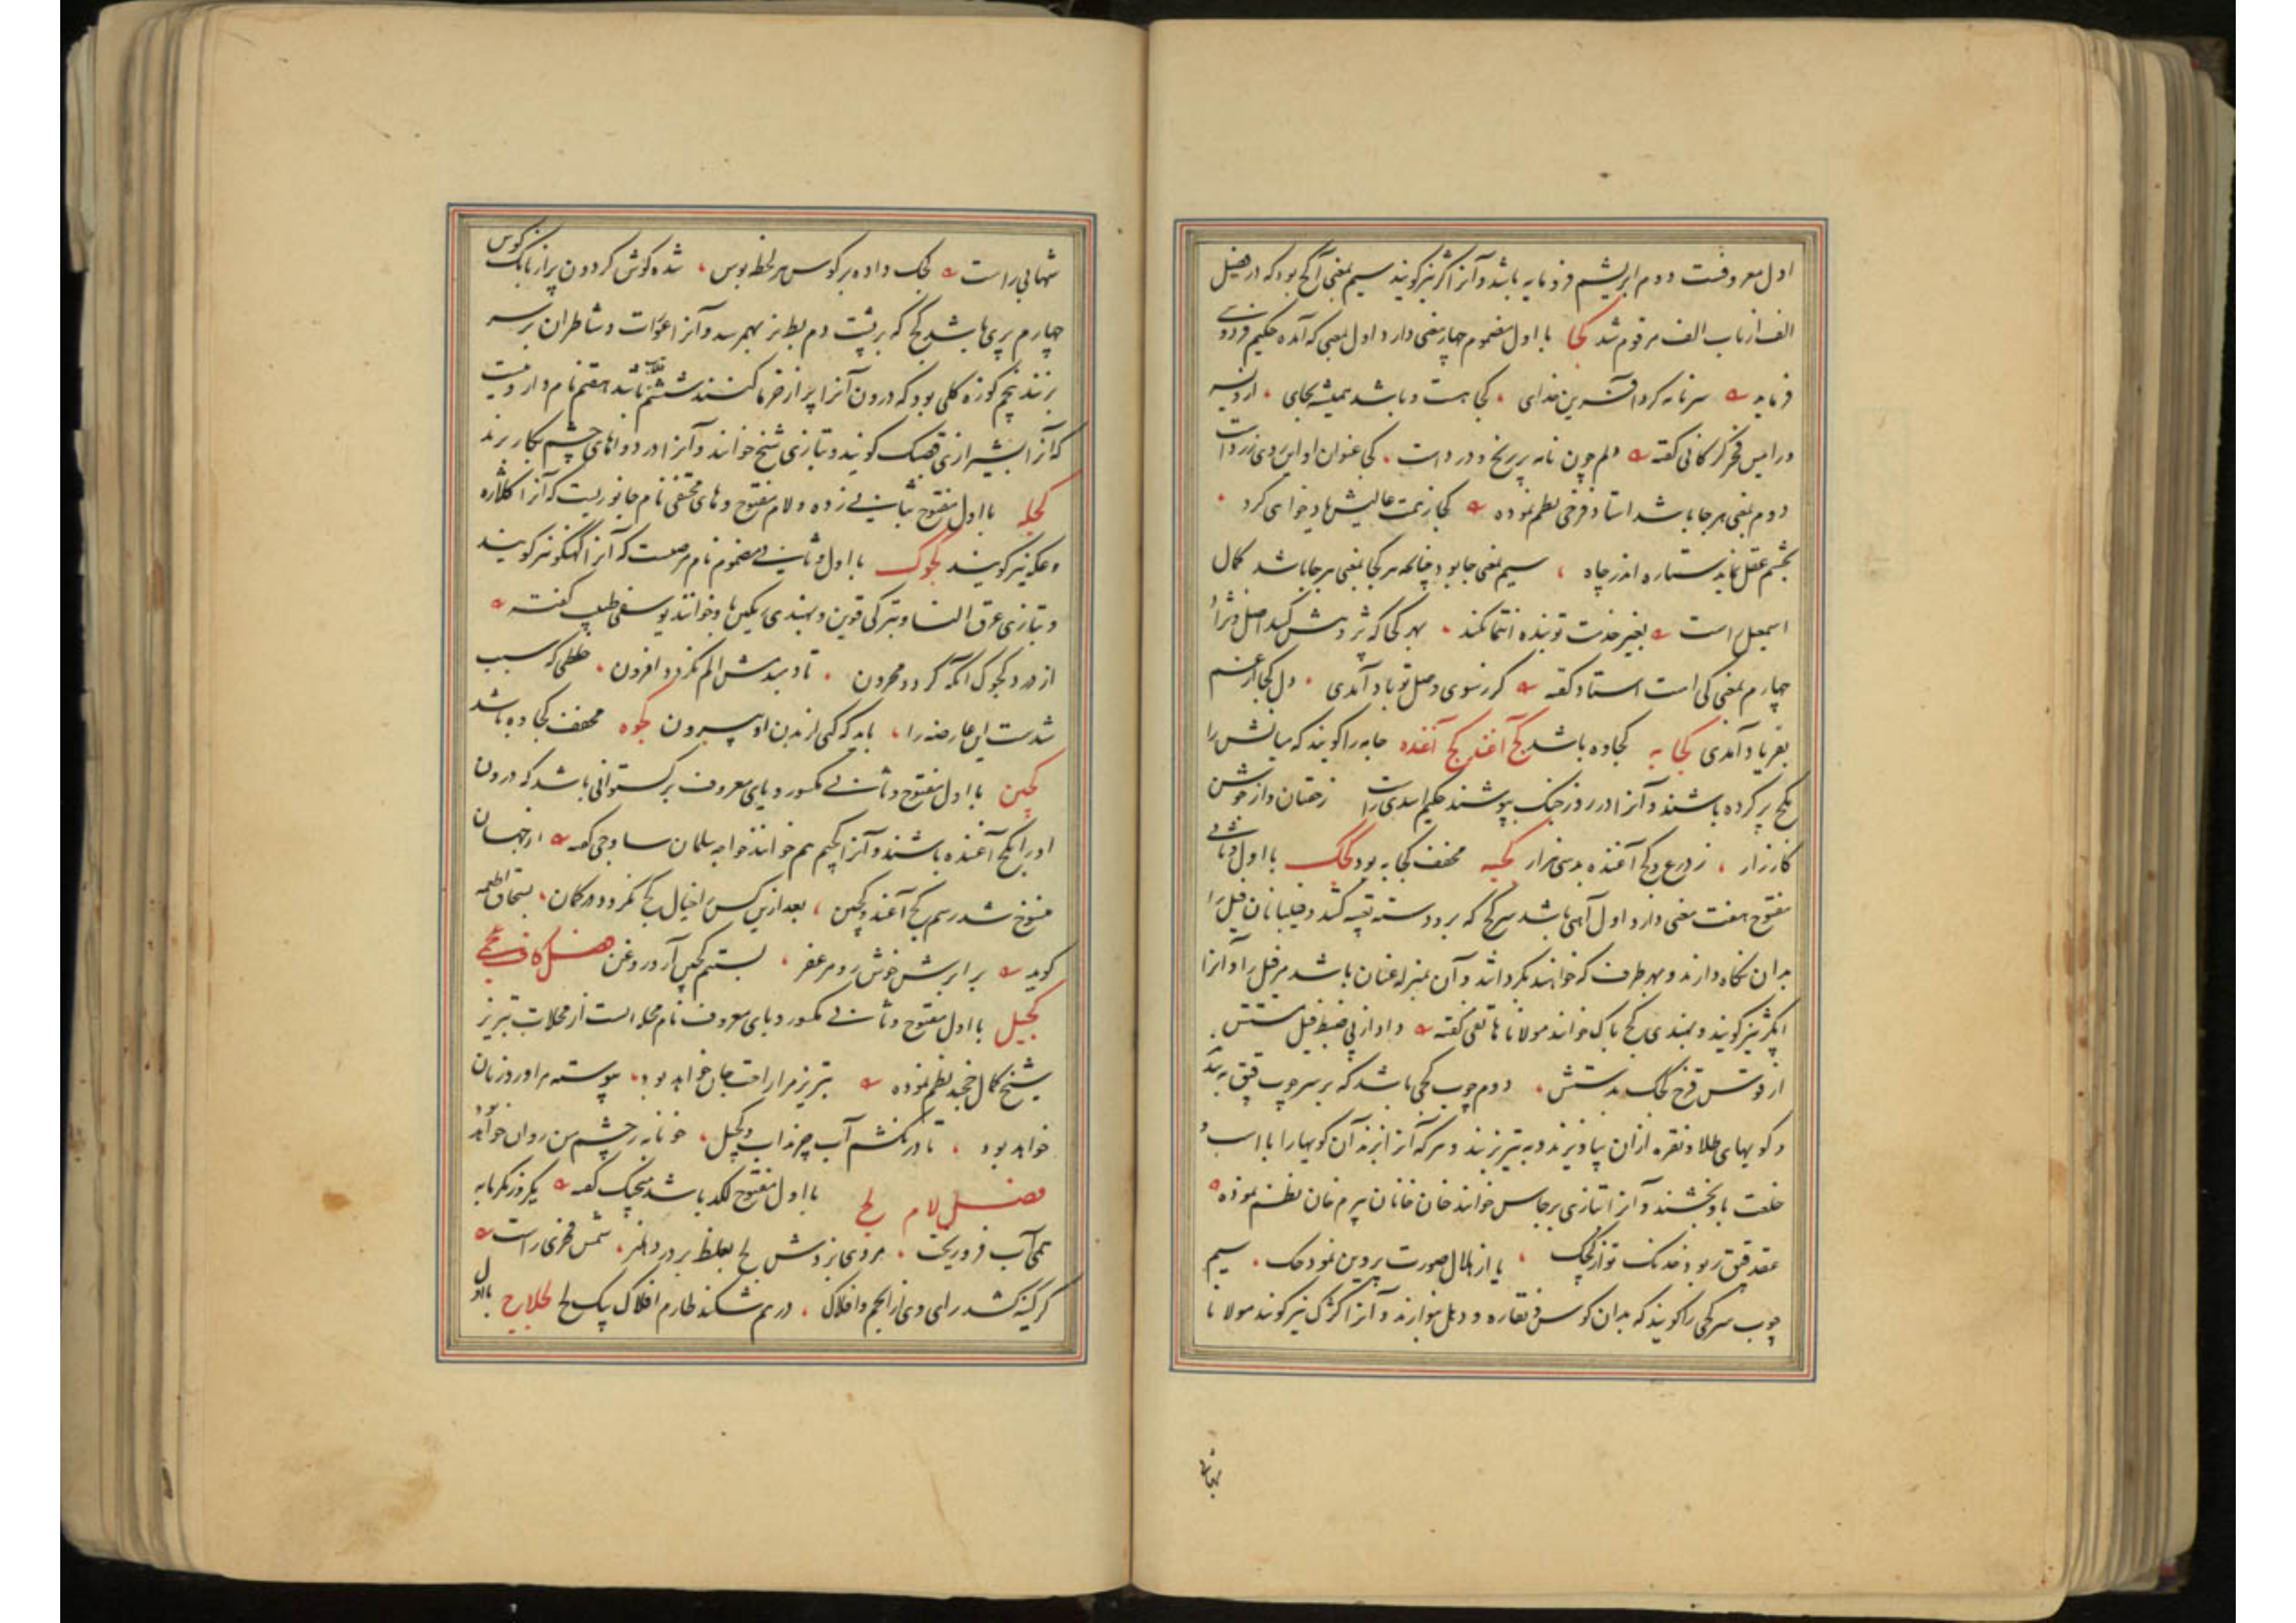 اول معروفست دوم ابریشم فرومایه باشد و آنرا کژ نیز گویند سیم بمعنی آکج بود که در فصل
الف از باب الف مرقوم شد کجا با اول مضموم چهار معنی دارد اول بمعنی که آمده حکیم فردوسی
فرماید سر نامه کرد آفرین خدای کجا هست و باشد همیشه بجای
ورامین فخر گرگانی گفته دلم چون نامه پر رنج و درد است کجا عنوان او این روی زرد است
دوم بمعنی هر جا باشد استاد فرخی نظم نموده کجا ز همت عالیش یاد خواهی کرد
بچشم عقل نماید ستاره اندر چاه سیم بمعنی جا بود چنانکه هر کجا بمعنی هر جا باشد کمال
اسمعیل راست بغیر خدمت تو بنده التجا نکند بهر کجا که پژوهش کنند اصل و نژاد
چهارم بمعنی کی است استاد گفته گر ز سوی وصل تو باد آمدی دل کجا از غم
بفریاد آمدی کجابه کجاوه باشد کج آغند کج آغنده جامه را گویند که میانش را
بکج پر کرده باشند و آنرا در روز جنگ بپوشند حکیم اسدی راست ز خفتان و از جوشن
کارزار ز درع و کج آغنده بد سی هزار کجبه مخفف کجابه بود کجک با اول و ثانی
مفتوح هفت معنی دارد اول آهنی باشد سر کج که بر دسته تعبیه کنند و فیلبانان فیل را
بدان نگاه دارند و بهر طرف که خواهند بگردانند و آن بمنزله عنان باشد مر فیل را و آنرا
انکژ نیز گویند و بهندی کج باک خوانند مولانا هاتفی گفته داد از پی ضبط فیل مستش
از قوس قزح کجک بدستش دوم چوب کجی باشد که بر سر چوب قپق بندند
و گویهای طلا و نقره از آن بیاویزند و به تیر زنند و هر که آنرا بزند آن گویها را با اسب و
خلعت باو بخشند و آنرا بتازی برجاس خوانند خان خانان بیرم خان نظم نموده
عقد قپق ربود خدنک تو از کجک یا از هلال صورت پروین نمود حک سیم
چوب سر کجی را گویند که بدان کوس و نقاره و دهل نوازند و آنرا کژک نیز گویند مولانا
شهابی راست کجک داده بر کوس هر لحظه بوس شده گوش گردون پر از بانک کوس
چهارم پری باشد کج که بر پشت دم بط نر بهم رسد و شاطران بر سر
برزنند پنجم کوزه گلی بود که درون آنرا پر از خرما کنند ششم هفتم نام داروئیست
که آنرا بشیرازی خوانند و آنرا در دواهای چشم بکار برند
کجله با اول مفتوح بثانی زده و لام مفتوح و های مختفی نام جانوریست که آنرا کلاژه
و عکه نیز گویند کجوک با اول و ثانی مضموم نام مرضیست که آنرا نیز گویند
و بتازی عرق النسا و بترکی و بهندی خوانند یوسفی طبیب گفته
از درد کجوک آنکه گردد محزون تا المش نگردد افزون خلطی که سبب
شدست این عارضه را باید که کنی از بدن او بیرون کجوه مخفف کجاوه باشد
کجین با اول مفتوح و ثانی مکسور و یای معروف برگستوانی باشد که درون
او را بکج آغنده باشند و آنرا کجیم هم خوانند خواجه سلمان ساوجی گفته از جهان
منسوخ شد رسم کج آغند و کجین بعد ازین کس را خیال کج نگردد در گمان بسحاق اطعمه
گوید بر ابرش خوش رو مزعفر بستم کجین آرد و روغن فصل کاف عجمی
کجیل با اول مفتوح و ثانی مکسور و یای معروف نام محله است از محلات تبریز
شیخ کمال خجند نظم نموده تبریز مرا راحت جان خواهد بود پیوسته مرا ورد زبان
خواهد بود تا در نکشم آب چرنداب و کجیل خونابه ز چشم من روان خواهد بود
فصل لام لج با اول مفتوح لکد باشد منجیک گفته یکروز بگرمابه
همی آب فرو ریخت مردی بزدش لج بغلط بر در دهلیز شمس فخری راست
گر کینه کشد رای وی از انجم و افلاک در هم شکند طارم افلاک بیک لج لجلاج با اول
بهای